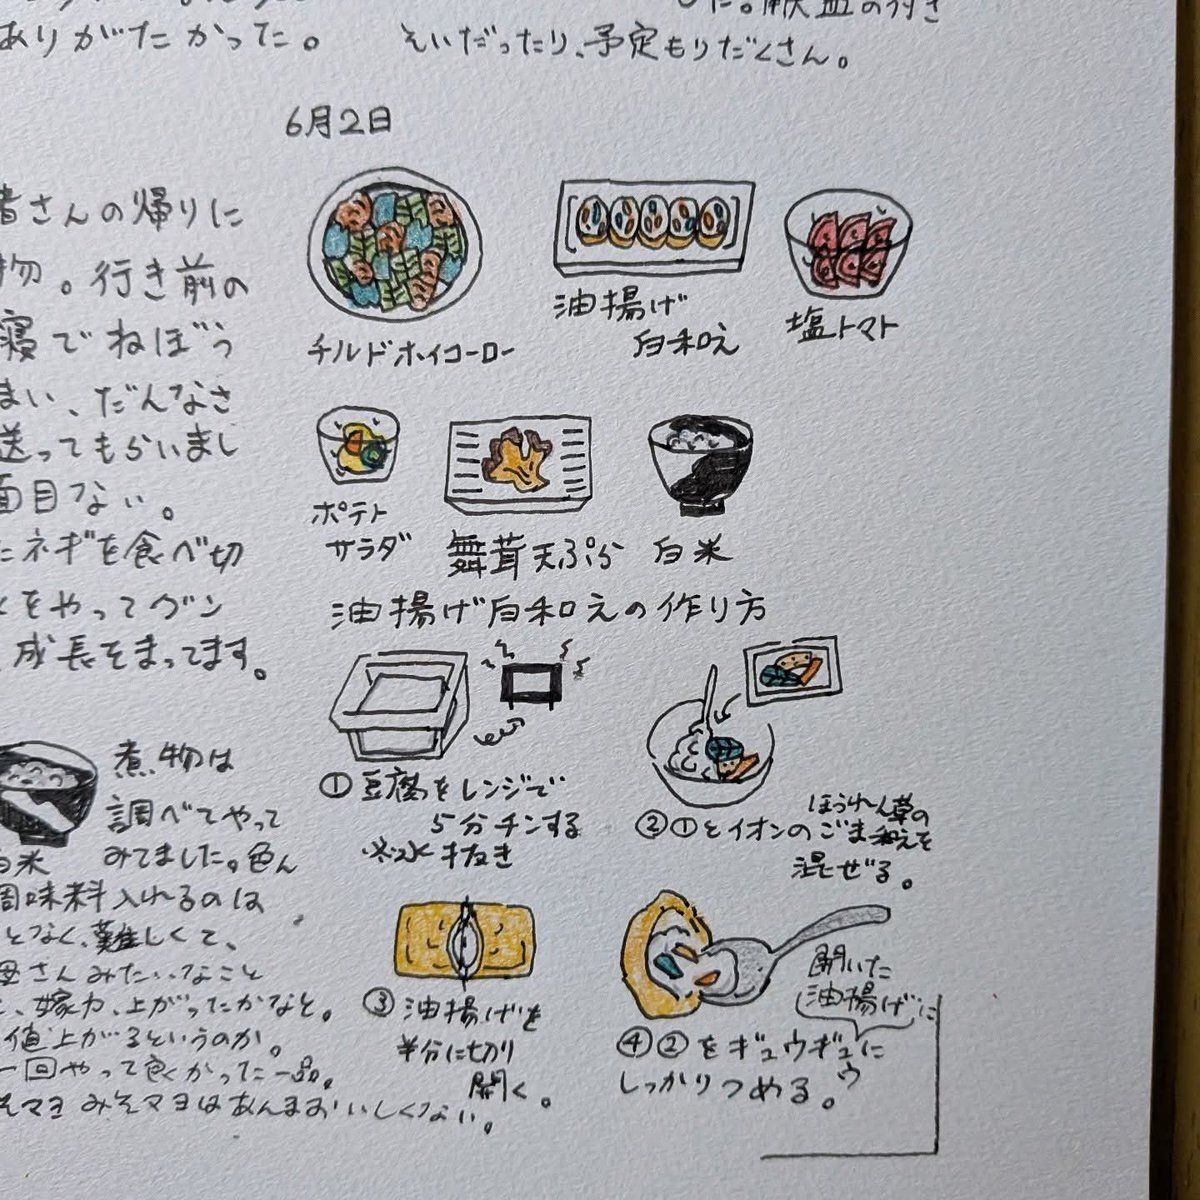 ありがたかった。
た。献血の付き
そいだったり、予定もりだくさん。
6月2日
者さんの帰りに
物。行き前の
寝でねぼう
まい、だんなさ
送ってもらいまし
面目ない。
たネギを食べ切
とをやってグン
成長をまってます。
チルドホイコーロー
油揚げ
白和え
塩トマト
ポテト
サラダ
舞茸天ぷら
白米
油揚げ白和えの作り方
①豆腐をレンジで
5分チンする
※水抜き
②①とイオンのほうれん草の
ごま和えを
混ぜる。
③油揚げを
半分に切り
開く。
開いた
油揚げに
④②をギュウギュウに
しっかりつめる。
白米
煮物は
調べてやって
みてました。色ん
調味料入れるのは
となく、難しくて、
母さんみたいなこと
、嫁力、上がったかなと。
値上がるというのか。
一回やって良かった一品。
みそマヨはあんまおいしくない。